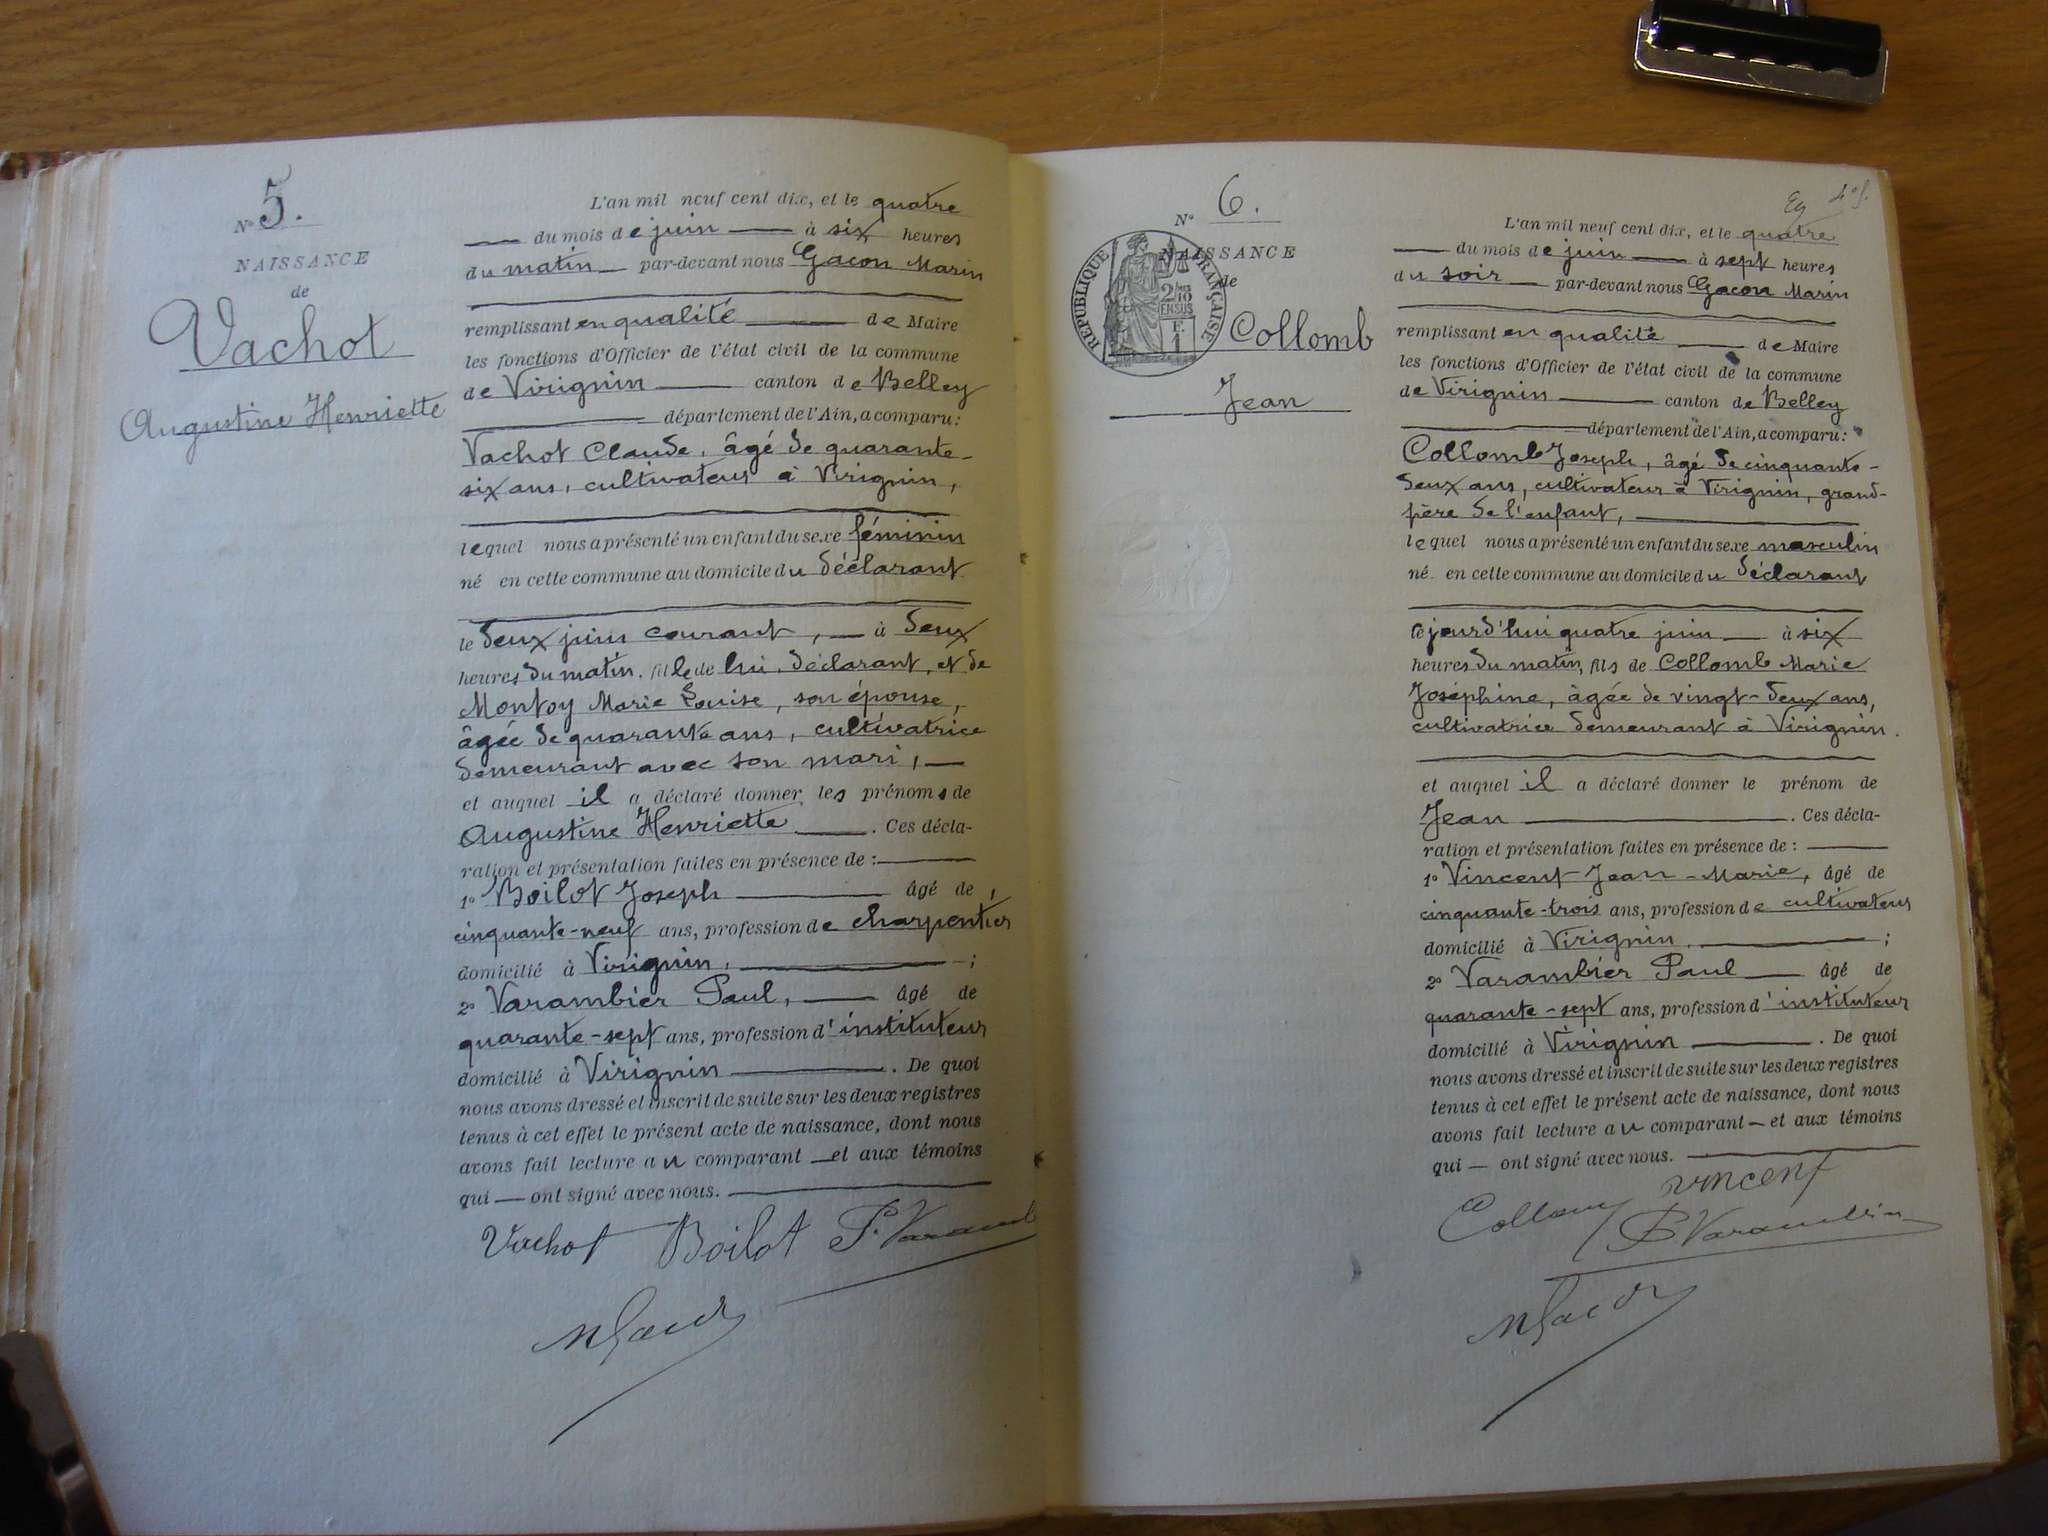 N° 5.
NAISSANCE
de
Vachot
Augustine Henriette
L'an mil neuf cent dix, et le quatre
du mois de juin à six heures
du matin par-devant nous Gacon Marin
remplissant en qualité de Maire
les fonctions d'Officier de l'état civil de la commune
de Virignin canton de Belley
département de l'Ain, a comparu:
Vachot Claude, âgé de quarante-
six ans, cultivateur à Virignin,
lequel nous a présenté un enfant du sexe féminin
né en cette commune au domicile du déclarant
le deux juin courant, à deux
heures du matin, fille de lui, déclarant, et de
Montoy Marie Louise, son épouse,
âgée de quarante ans, cultivatrice
demeurant avec son mari,
et auquel il a déclaré donner les prénoms de
Augustine Henriette. Ces décla-
ration et présentation faites en présence de:
1° Boilot Joseph âgé de
cinquante-neuf ans, profession de charpentier
domicilié à Virignin, ;
2° Varambier Paul, âgé de
quarante-sept ans, profession d'instituteur
domicilié à Virignin. De quoi
nous avons dressé et inscrit de suite sur les deux registres
tenus à cet effet le présent acte de naissance, dont nous
avons fait lecture au comparant et aux témoins
qui ont signé avec nous.
Vachot Boilot P. Varamb
MGacon
N° 6.
NAISSANCE
de
RÉPUBLIQUE FRANÇAISE
2/10
EN SUS
F.
1
Collomb
Jean
4e f.
L'an mil neuf cent dix, et le quatre
du mois de juin à sept heures
du soir par-devant nous Gacon Marin
remplissant en qualité de Maire
les fonctions d'Officier de l'état civil de la commune
de Virignin canton de Belley
département de l'Ain, a comparu:
Collomb Joseph, âgé de cinquante-
deux ans, cultivateur à Virignin, grand-
père de l'enfant,
lequel nous a présenté un enfant du sexe masculin
né en cette commune au domicile du déclarant
cejourd'hui quatre juin à six
heures du matin, fils de Collomb Marie
Joséphine, âgée de vingt-deux ans,
cultivatrice demeurant à Virignin.
et auquel il a déclaré donner le prénom de
Jean. Ces décla-
ration et présentation faites en présence de:
1° Vincent Jean-Marie, âgé de
cinquante-trois ans, profession de cultivateur
domicilié à Virignin, ;
2° Varambier Paul âgé de
quarante-sept ans, profession d'instituteur
domicilié à Virignin. De quoi
nous avons dressé et inscrit de suite sur les deux registres
tenus à cet effet le présent acte de naissance, dont nous
avons fait lecture au comparant et aux témoins
qui ont signé avec nous.
Vincent
Collomb P Varambier
MGacon